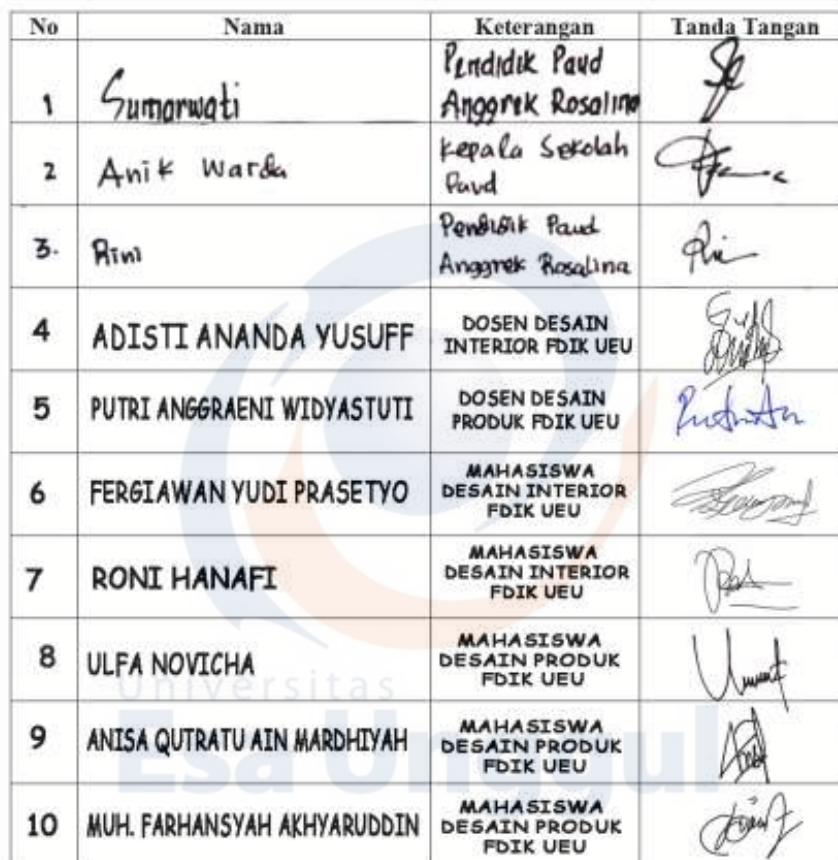 No Nama Keterangan Tanda Tangan
1 Sumarwati Pendidik Paud
Anggrek Rosalina
2 Anik Warda Kepala Sekolah
Paud
3. Rini Pendidik Paud
Anggrek Rosalina
4 ADISTI ANANDA YUSUFF DOSEN DESAIN
INTERIOR FDIK UEU
5 PUTRI ANGGRAENI WIDYASTUTI DOSEN DESAIN
PRODUK FDIK UEU
6 FERGIAWAN YUDI PRASETYO MAHASISWA
DESAIN INTERIOR
FDIK UEU
7 RONI HANAFI MAHASISWA
DESAIN INTERIOR
FDIK UEU
8 ULFA NOVICHA MAHASISWA
DESAIN PRODUK
FDIK UEU
Universitas
9 ANISA QUTRATU AIN MARDHIYAH MAHASISWA
DESAIN PRODUK
FDIK UEU
Esa Unggul
10 MUH. FARHANSYAH AKHYARUDDIN MAHASISWA
DESAIN PRODUK
FDIK UEU